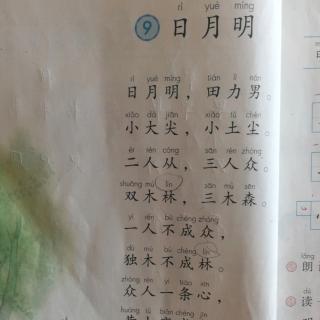 rì yuè míng
9 日月明
rì yuè míng tián lì nán
日月明，田力男。
xiǎo dà jiān xiǎo tǔ chén
小大尖，小土尘。
èr rén cóng sān rén zhòng
二人从，三人众。
shuāng mù lín sān mù sēn
双木林，三木森。
yì rén bù chéng zhòng
一人不成众，
dú mù bù chéng lín
独木不成林。
zhòng rén yì tiáo xīn
众人一条心，
huáng tǔ biàn chéng jīn
lǎng
朗
dú
读